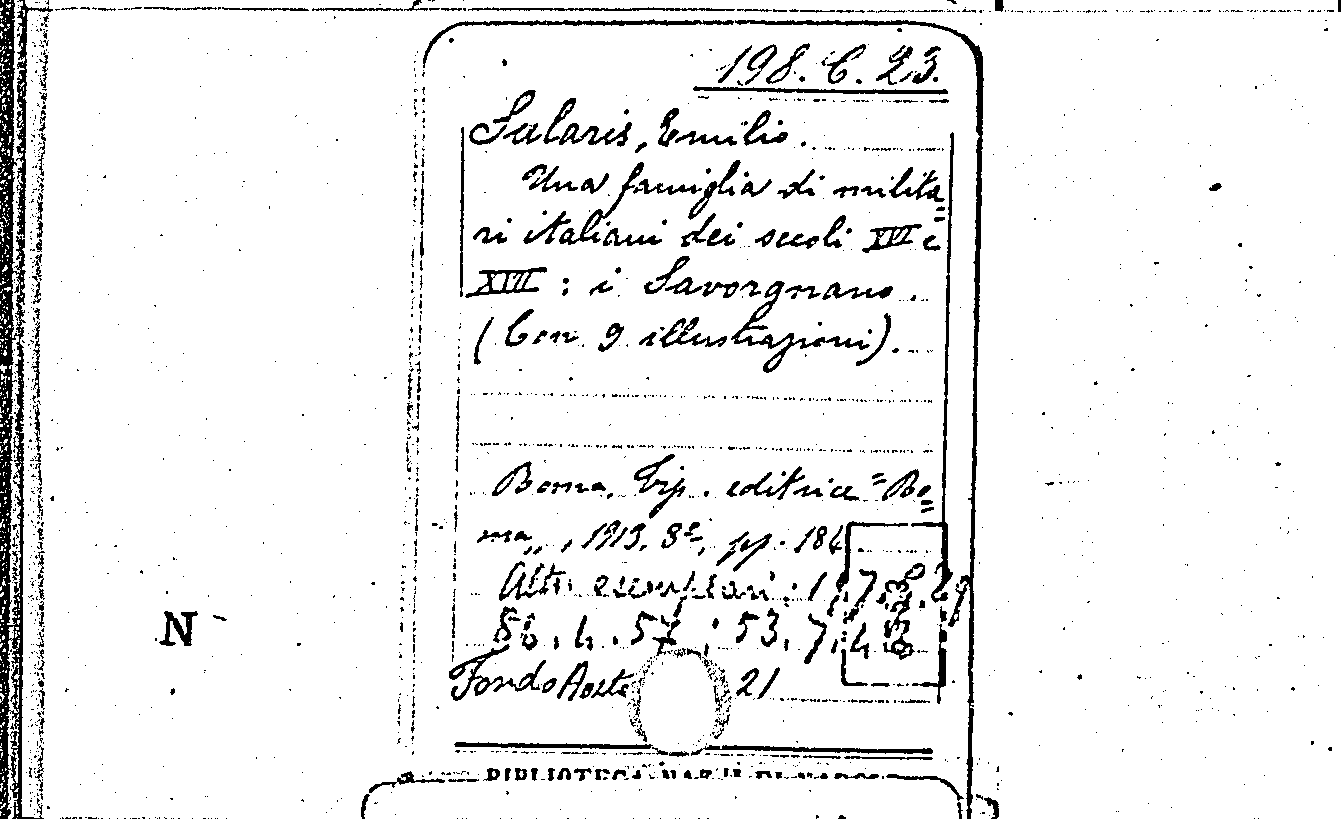 198. C. 23.
Salaris, Emilio.
Una famiglia di milita=
ri italiani dei secoli XVI e
XVII : i Savorgnano.
(Con 9 illustrazioni).
Roma, Tip. editrice "Ro=
ma„, 1913, 8º, pp. 184
Altri esemplari:
53.
Fondo Aosta 21
N